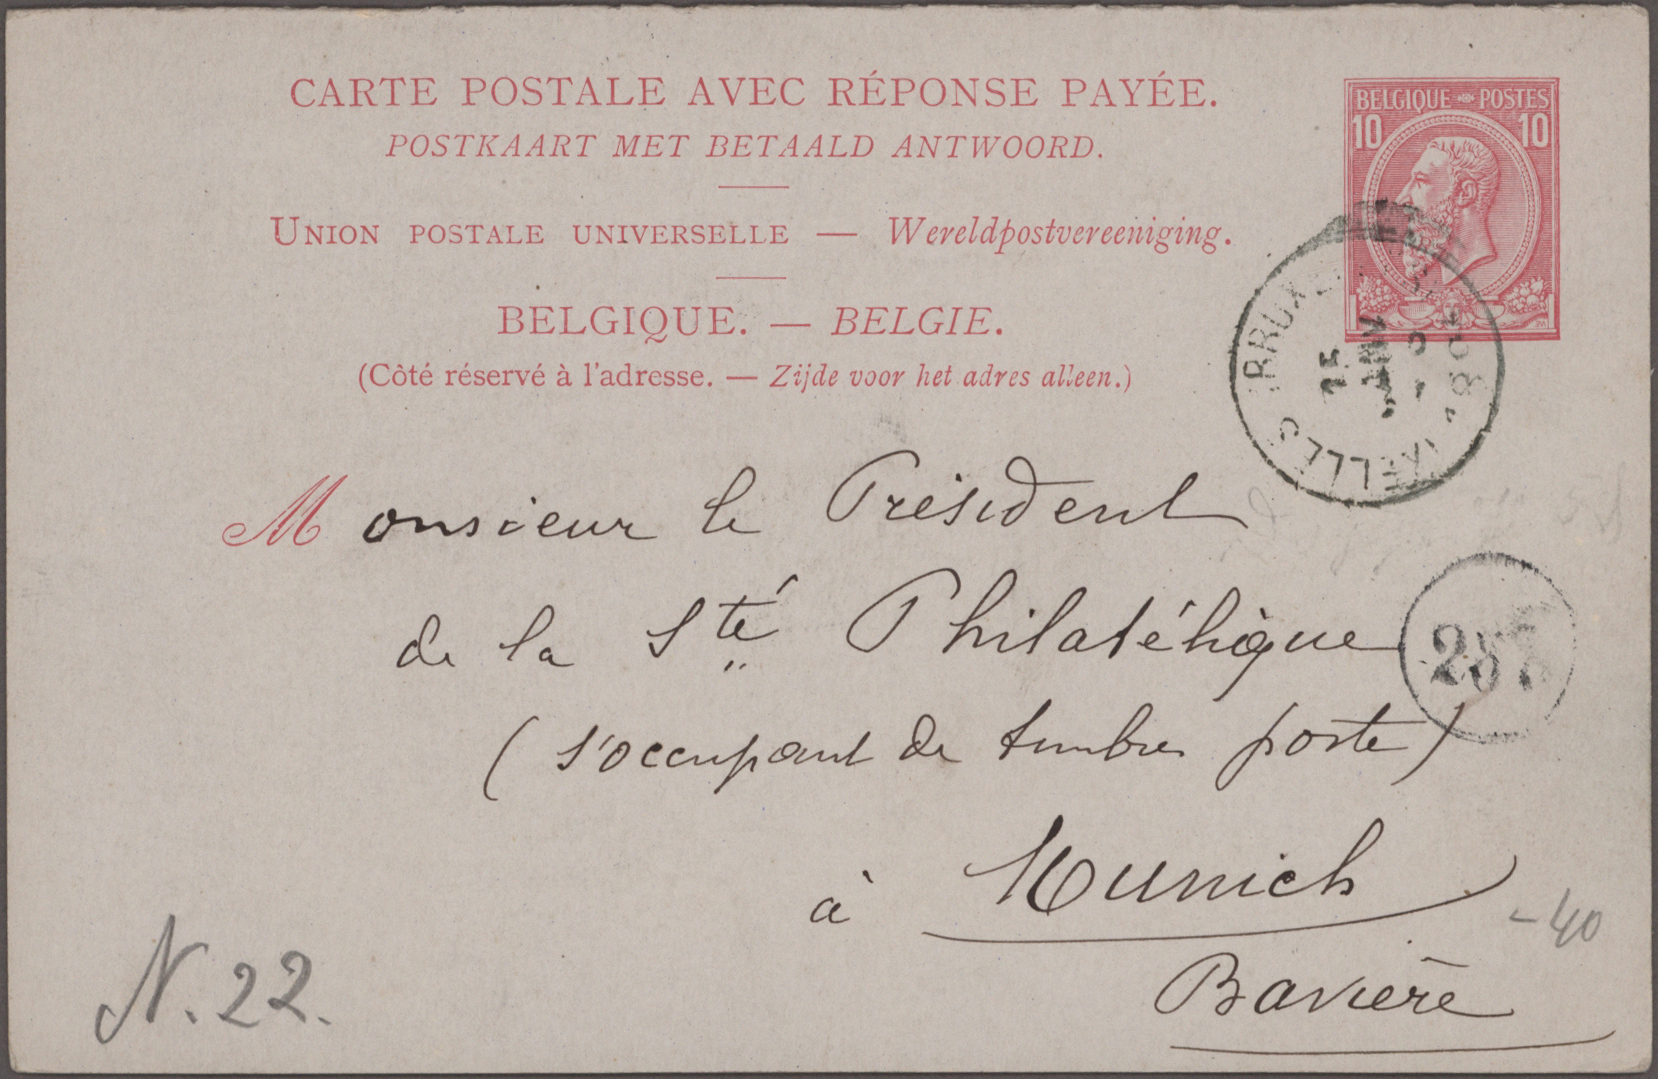 CARTE POSTALE AVEC RÉPONSE PAYÉE.
POSTKAART MET BETAALD ANTWOORD.
UNION POSTALE UNIVERSELLE — Wereldpostvereeniging.
BELGIQUE. — BELGIE.
(Côté réservé à l'adresse. — Zijde voor het adres alleen.)
BELGIQUE POSTES
10 10
BRUXELLES
15
Monsieur le Président
de la Sté Philatélique
(s'occupant de timbres poste)
à Munich
Bavière
-40
N. 22.